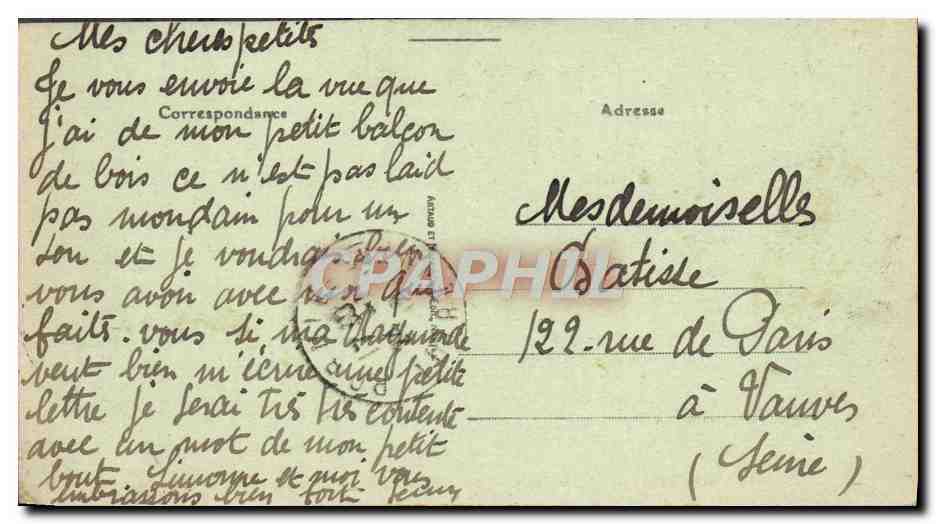 Mes cheres petits
Je vous envoie la vue que
Correspondance
j'ai de mon petit balcon
de bois ce n'est pas laid
pas mondain pour un
sou et je voudrais bien
vous avoir avec moi que
faits-vous si ma Raymonde
veut bien m'écrire une petite
lettre je serai très très contente
avec un mot de mon petit
bout Simonne et moi vous
embrassons bien fort
Adresse
Mesdemoiselles
Batisse
122 - rue de Paris
à Vanves
(Seine)
ARTAUD ET
CPAPHIL